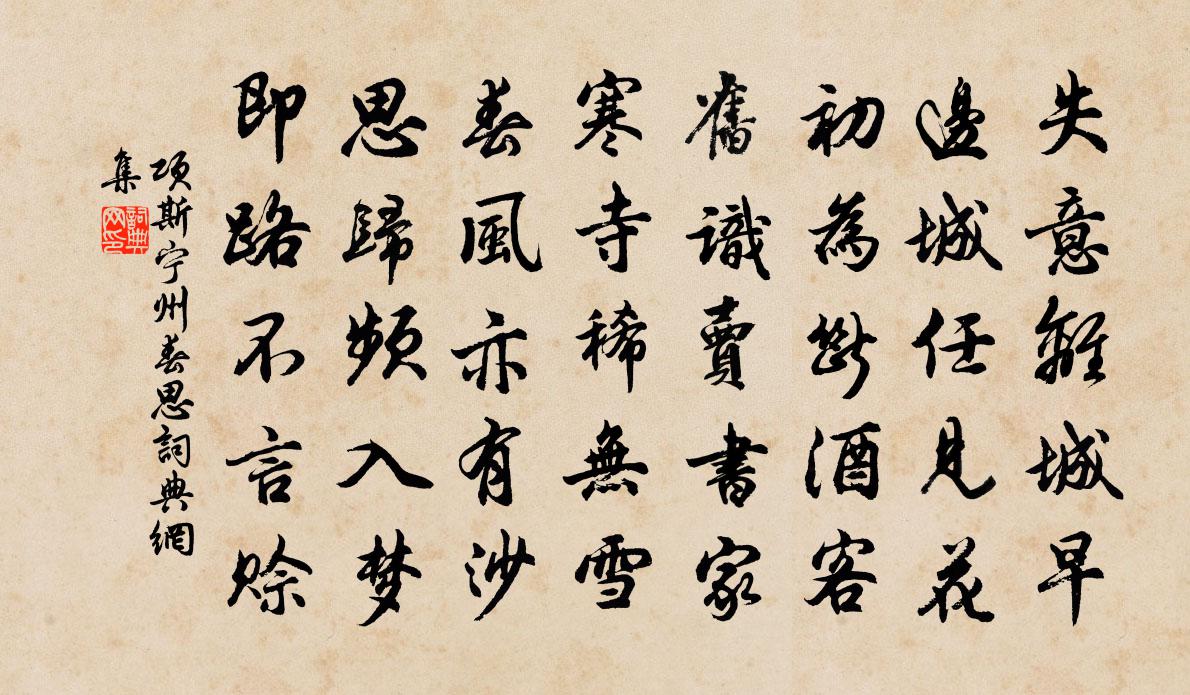 失意離城早
邊城任見花
初為斷酒客
舊識賣書家
寒寺稀無雪
春風亦有沙
思歸頻入梦
即路不言賒
項斯宁州春思詞典網
集
詞典
网印